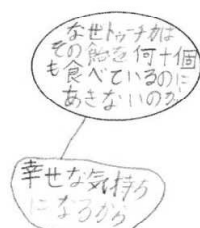 なぜトゥーナカは
その飴を何十個
も食べているのに
あきないのか
幸せな気持ち
になるから